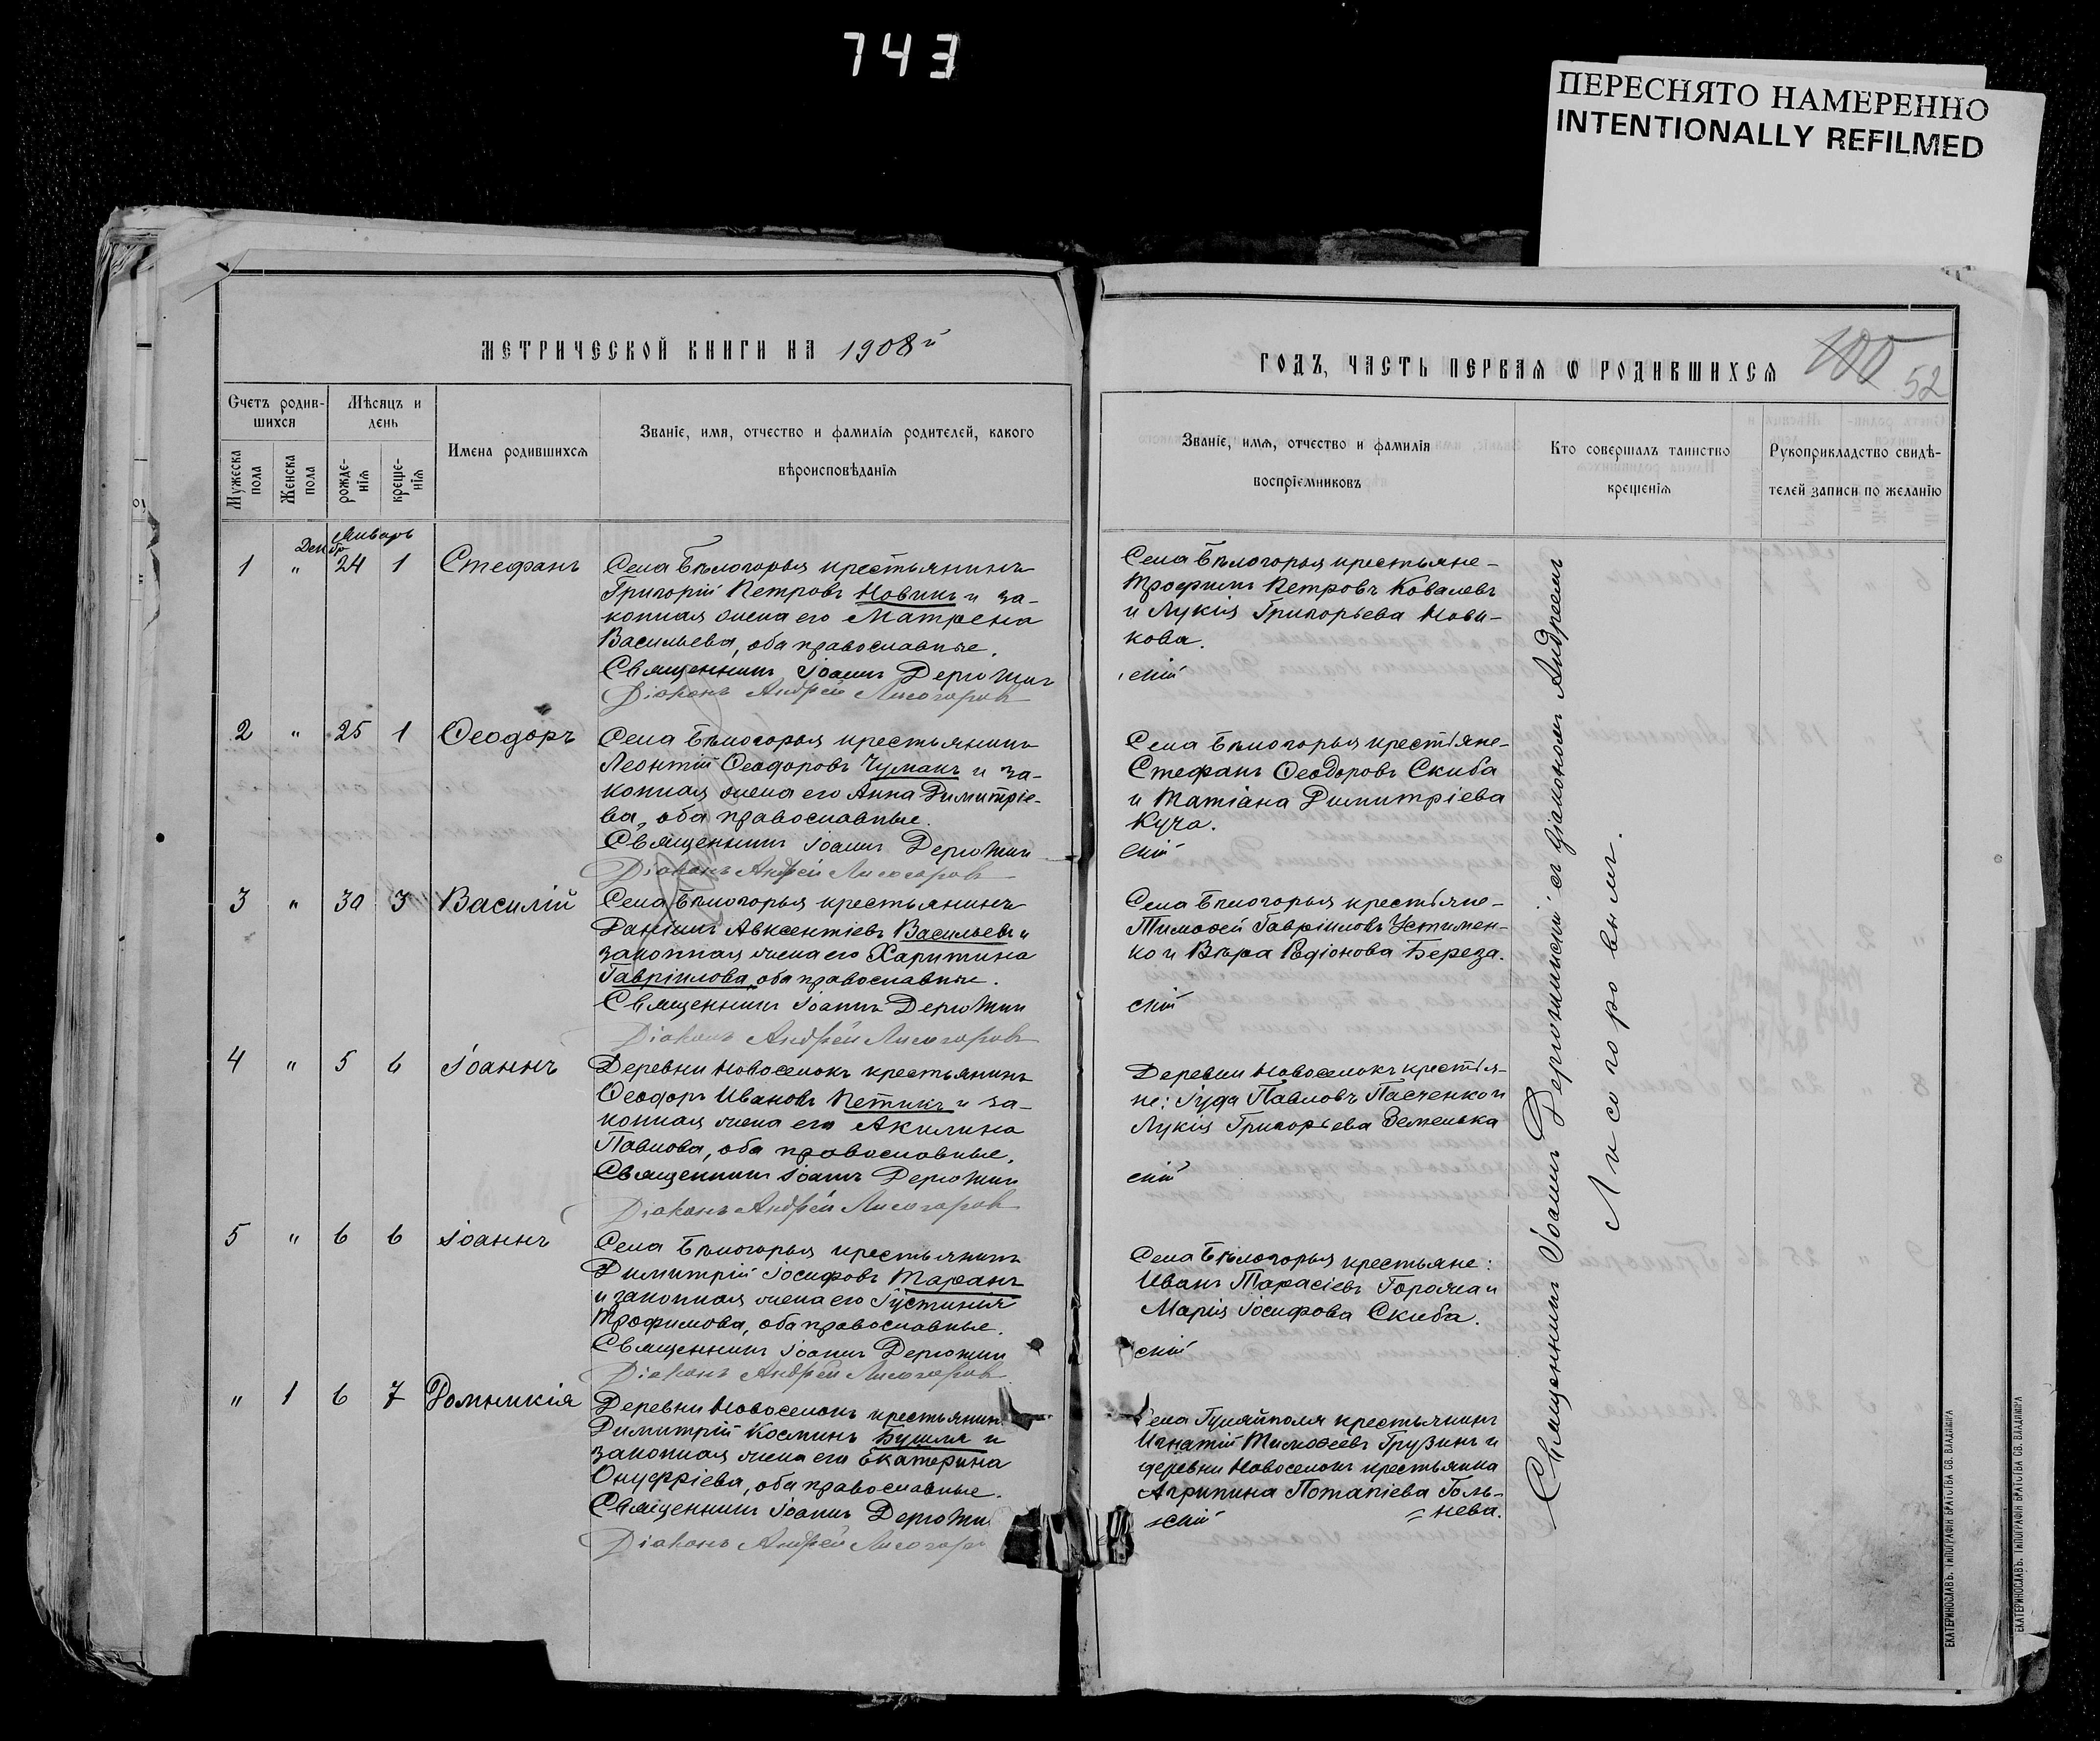 743
ПЕРЕСНЯТО НАМЕРЕННО
INTENTIONALLY REFILMED
МЕТРИЧЕСКОЙ КНИГИ НА 1908й
ГОДЪ, ЧАСТЬ ПЕРВАЯ Ѡ РОДИВШИХСЯ
100 52
Счетъ родив-
шихся
Мѣсяцъ и
день
Мужеска
пола
Женска
пола
рожде-
нія
креще-
нія
Имена родившихся
Званіе, имя, отчество и фамилія родителей, какого
вѣроисповѣданія
Званіе, имя, отчество и фамилія
воспріемниковъ
Кто совершалъ таинство
крещенія
Рукоприкладство свидѣ-
телей записи по желанію
Январь
1 " 24 1 Стефанъ
Села Бѣлогорья крестьянинъ
Григорій Петровъ Новикъ и за-
конная жена его Матрена
Васильева, оба православные.
Священникъ Іоаннъ Дерюжин
Діаконъ Андрей Лисогоровъ
Села Бѣлогорья крестьяне-
Трофимъ Петровъ Ковалевъ
и Лукія Григорьева Нови-
кова.
скій
2 " 25 1 Ѳеодоръ
Села Бѣлогорья крестьянинъ
Леонтій Ѳеодоровъ Чумакъ и за-
конная жена его Анна Димитріе-
ва, оба православные.
Священникъ Іоаннъ Дерюжин
Діаконъ Андрей Лисогоровъ
Села Бѣлогорья крестьяне-
Стефанъ Ѳеодоровъ Скиба
и Татіана Димитріева
Куча.
скій
3 " 30 3 Василій
Села Бѣлогорья крестьянинъ
Даніилъ Авксентіевъ Васильевъ и
законная жена его Харитина
Гавріилова, оба православные.
Священникъ Іоаннъ Дерюжин
Діаконъ Андрей Лисогоровъ
Села Бѣлогорья крестьяне-
Тимоѳей Гавріиловъ Устимен-
ко и Вѣра Родіонова Береза.
скій
4 " 5 6 Іоаннъ
Деревни Новоселокъ крестьянинъ
Ѳеодоръ Ивановъ Петикъ и за-
конная жена его Акилина
Павлова, оба православные.
Священникъ Іоаннъ Дерюжин
Діаконъ Андрей Лисогоровъ
Деревни Новоселокъ крестья-
не: Іуда Павловъ Пасченко и
Лукія Григорьева
скій
5 " 6 6 Іоаннъ
Села Бѣлогорья крестьянинъ
Димитрій Іосифовъ Таранъ
и законная жена его Іустинія
Трофимова, оба православные.
Священникъ Іоаннъ Дерюжин
Діаконъ Андрей Лисогоровъ
Села Бѣлогорья крестьяне:
Иванъ Тарасіевъ и
Марія Іосифова Скиба.
скій
" 1 6 7 Домникія
Деревни Новоселокъ крестьянин
Димитрій Косминъ и
законная жена его Екатерина
Онуфріева, оба православные.
Священникъ Іоаннъ Дерюжи
Діаконъ Андрей Лисогоро
Села Гуляйполя крестьянинъ
Игнатій Тимоѳеевъ Грузинъ и
деревни Новоселокъ крестьянка
Агрипина Потапіева Голь-
=нева.
скій
Священникъ Іоаннъ Дерюжинскій съ діакономъ Андреемъ
Лисогоровымъ.
ЕКАТЕРИНОСЛАВЪ. ТИПОГРАФІЯ БРАТСТВА СВ. ВЛАДИМІРА
ЕКАТЕРИНОСЛАВЪ. ТИПОГРАФІЯ БРАТСТВА СВ. ВЛАДИМІРА